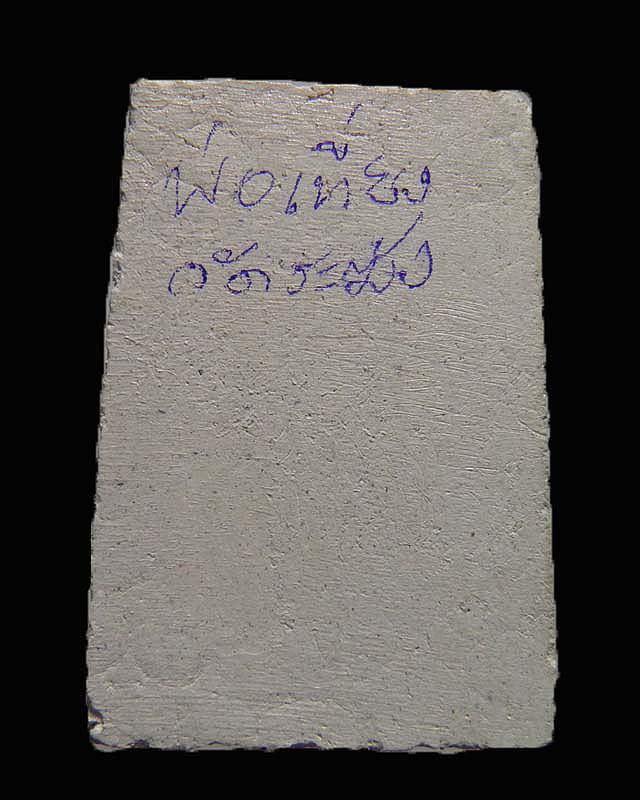 พ่อเที่ยง
วัดระฆัง